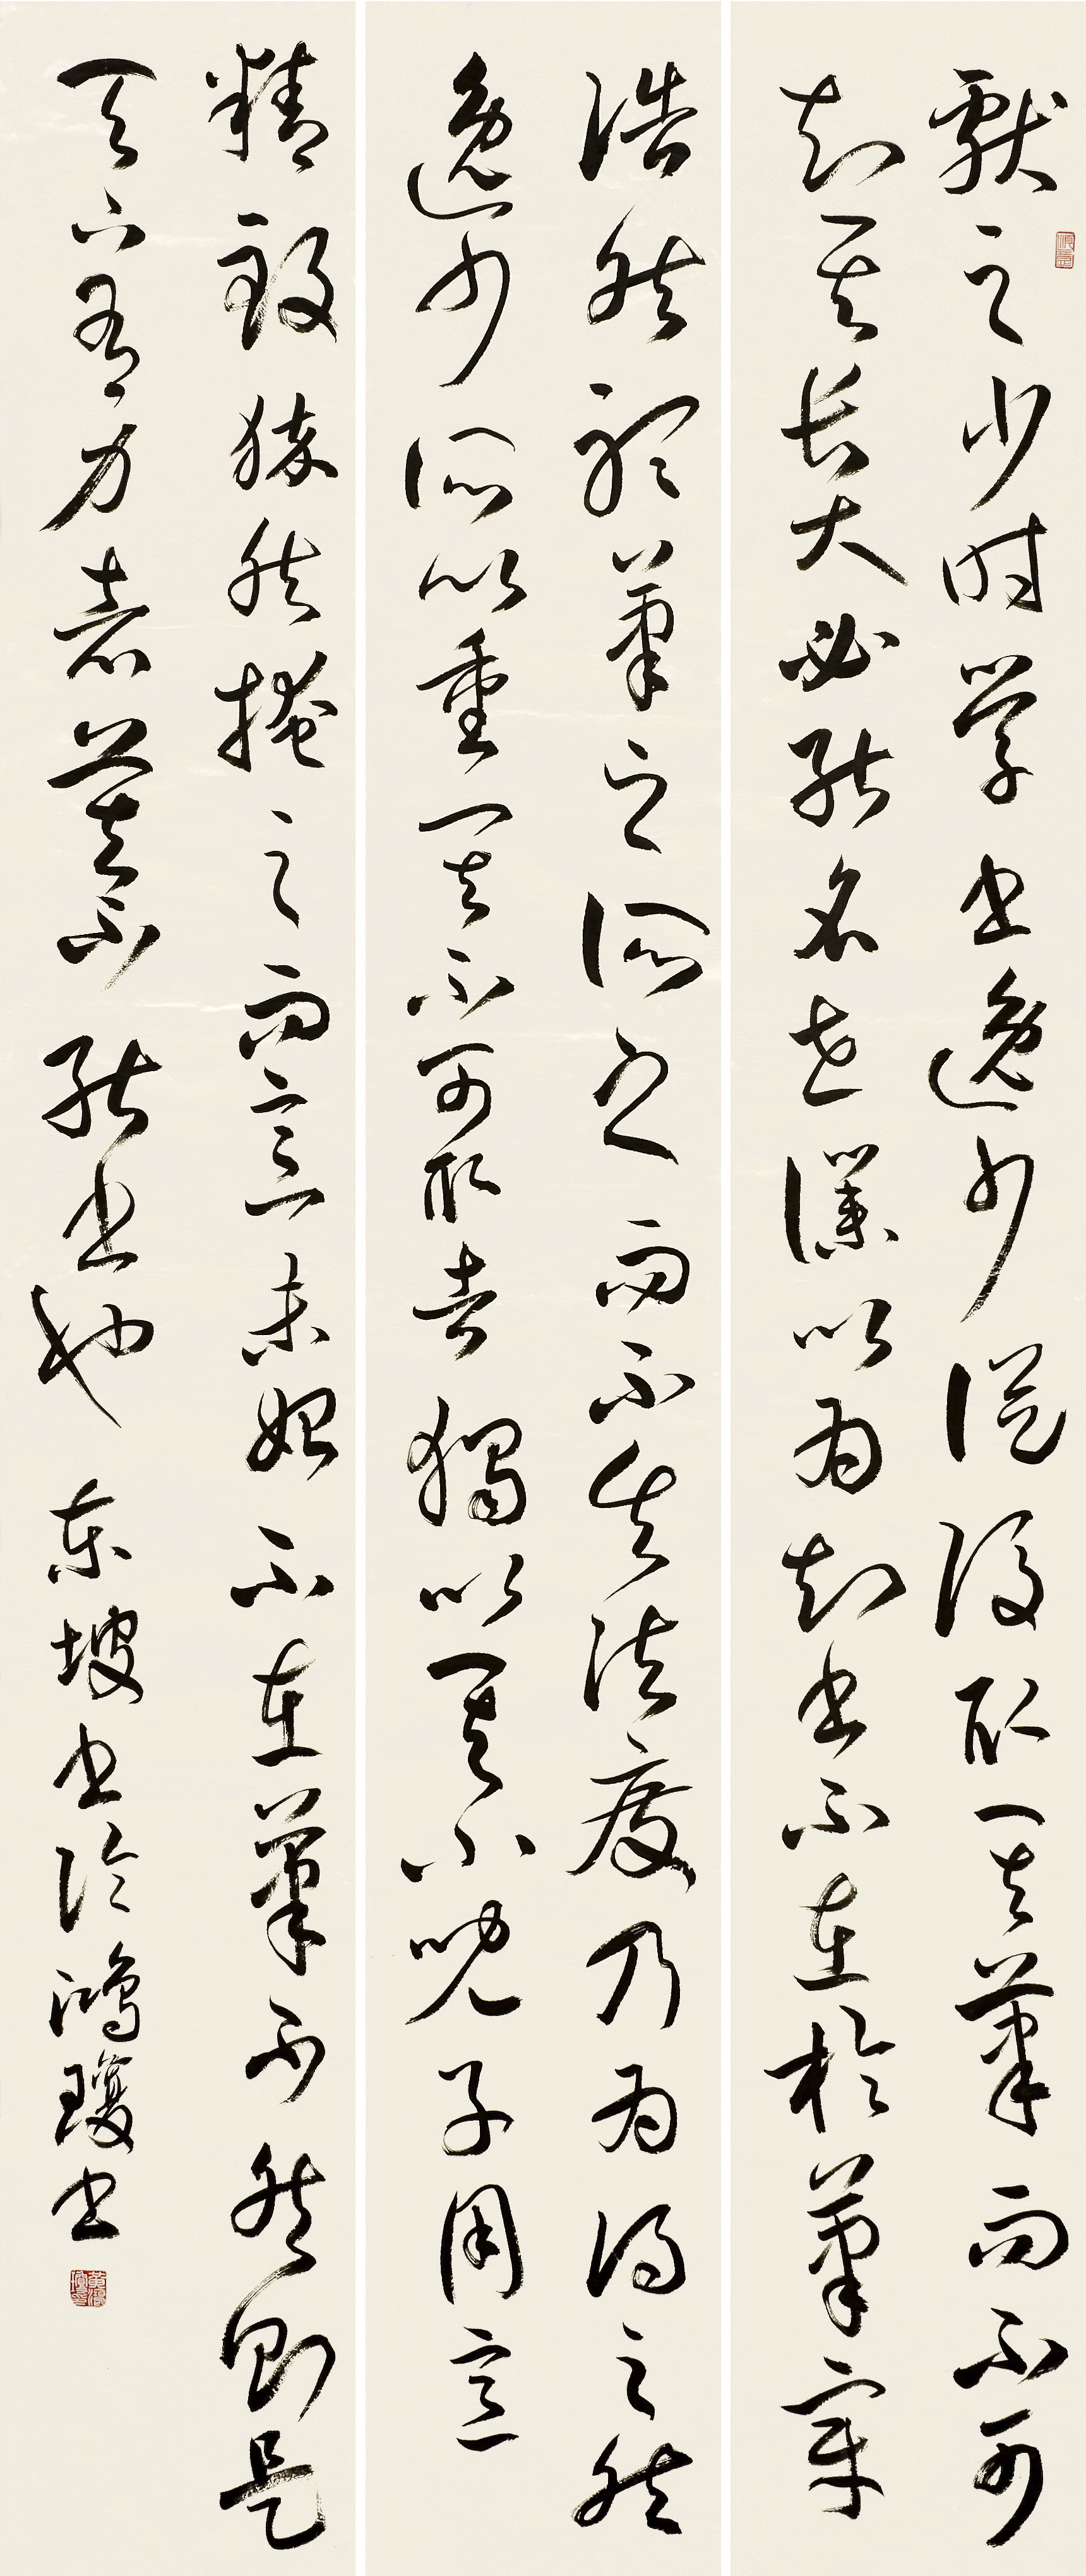 献之少时学书逸少从后取其笔而不可
知其长大必能名世仆以为知书不在于笔牢
浩然听笔之所之而不失法度乃为得之然
逸少所以重其不可取者独以其小儿子用意
精致猝然掩之而意未始不在笔不然则是
天下有力者莫不能书也 东坡书论 鸿琼书